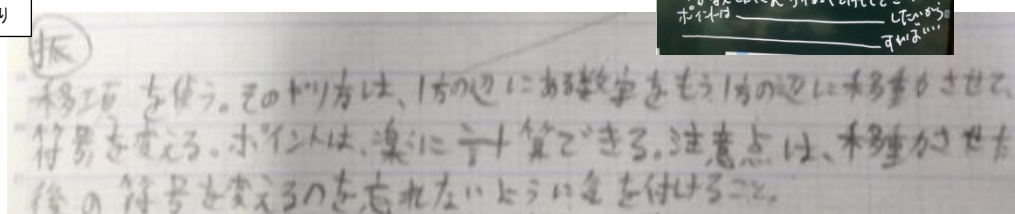 り
ポイントは＿＿＿＿＿＿したいから
＿＿＿＿＿＿すればいい
振
移項を使う。そのやり方は、1方の辺にある数字をもう1方の辺に移動させて、
符号を変える。ポイントは、楽に計算できる。注意点は、移動させた
後の符号を変えるのを忘れないように気を付けること。